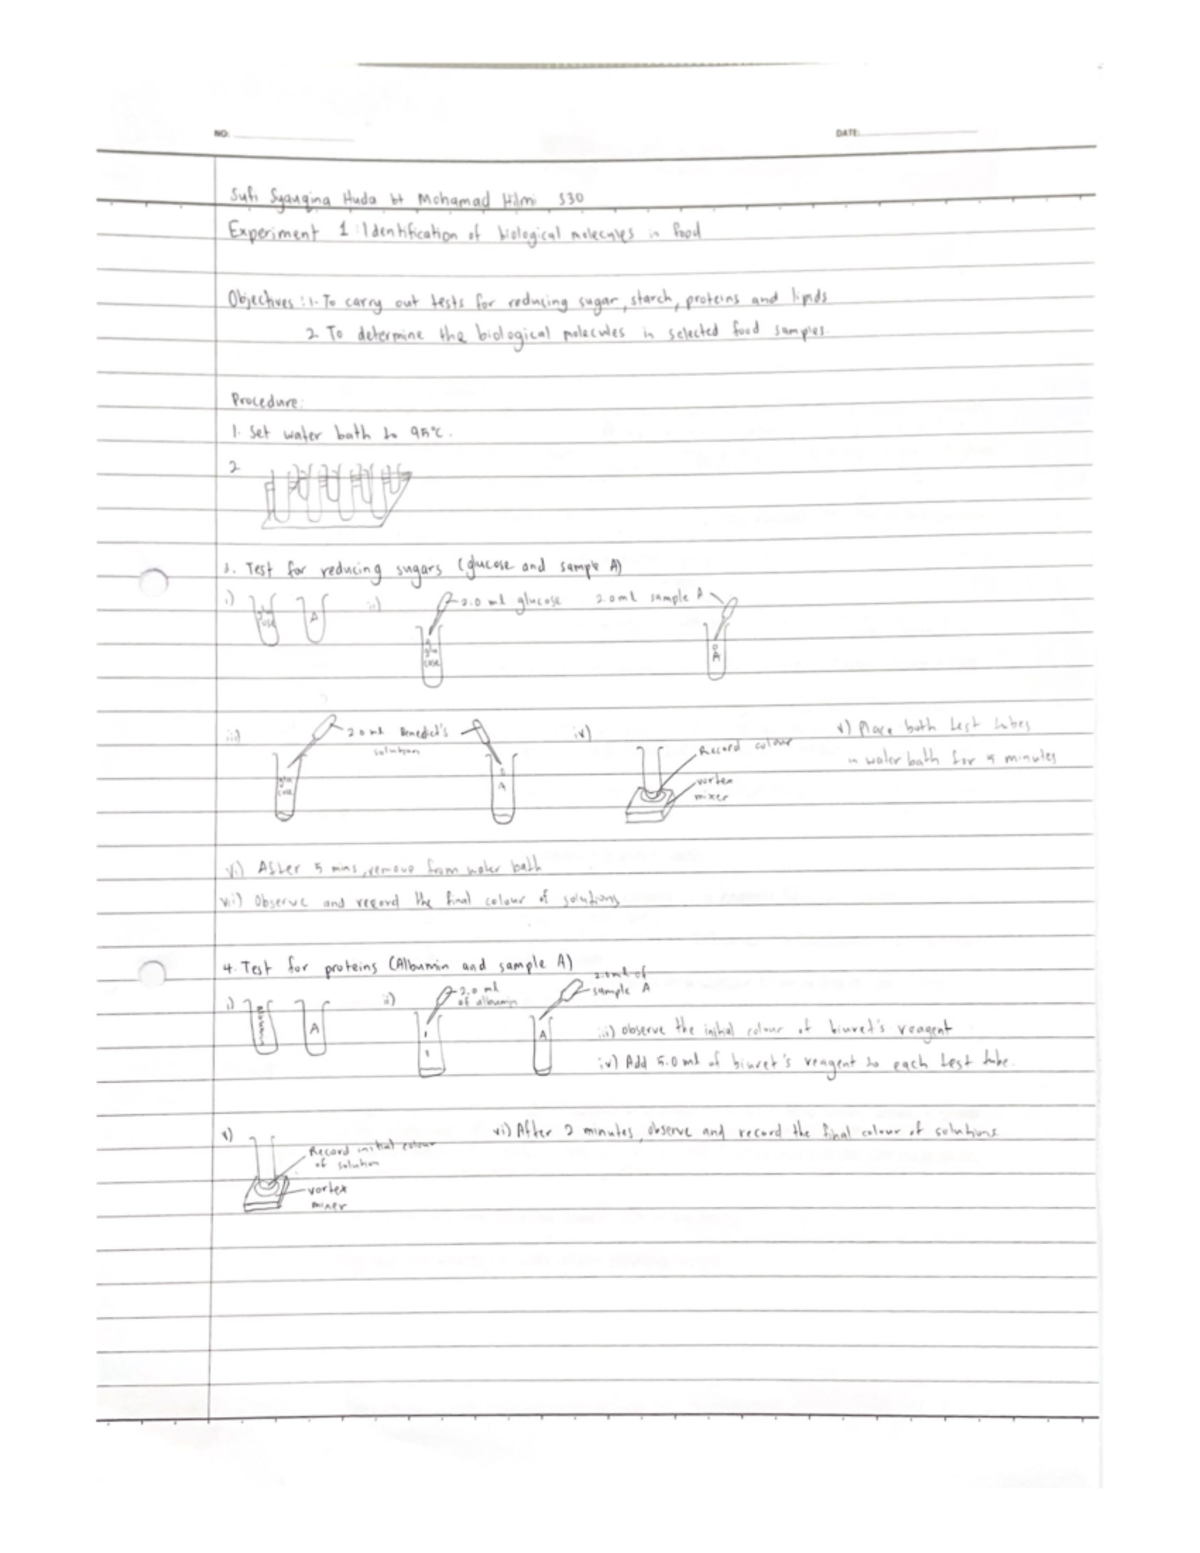 NO:
DATE:
Sufi Syauqina Huda bt Mohamad Hilmi S30
Experiment 1 : Identification of biological molecules in food
Objectives : 1. To carry out tests for reducing sugar, starch, proteins and lipids
2. To determine the biological molecules in selected food samples.
Procedure:
1. Set water bath to 95°C.
2
3. Test for reducing sugars (glucose and sample A)
i) glucose A ii) 2.0 ml glucose 2.0 ml sample A
glu
cose
A
iii) 2.0 ml Benedict's
solution
glu
cose
A
iv) Record colour
vortex
mixer
v) Place both test tubes
in water bath for 5 minutes
vi) After 5 mins, remove from water bath
vii) Observe and record the final colour of solutions
4. Test for proteins (Albumin and sample A)
i) Albumin A ii) 2.0 ml
of albumin
2.0ml of
sample A
A
iii) observe the initial colour of biuret's reagent
iv) Add 5.0 ml of biuret's reagent to each test tube.
v) Record initial colour
of solution
vortex
mixer
vi) After 2 minutes, observe and record the final colour of solutions.